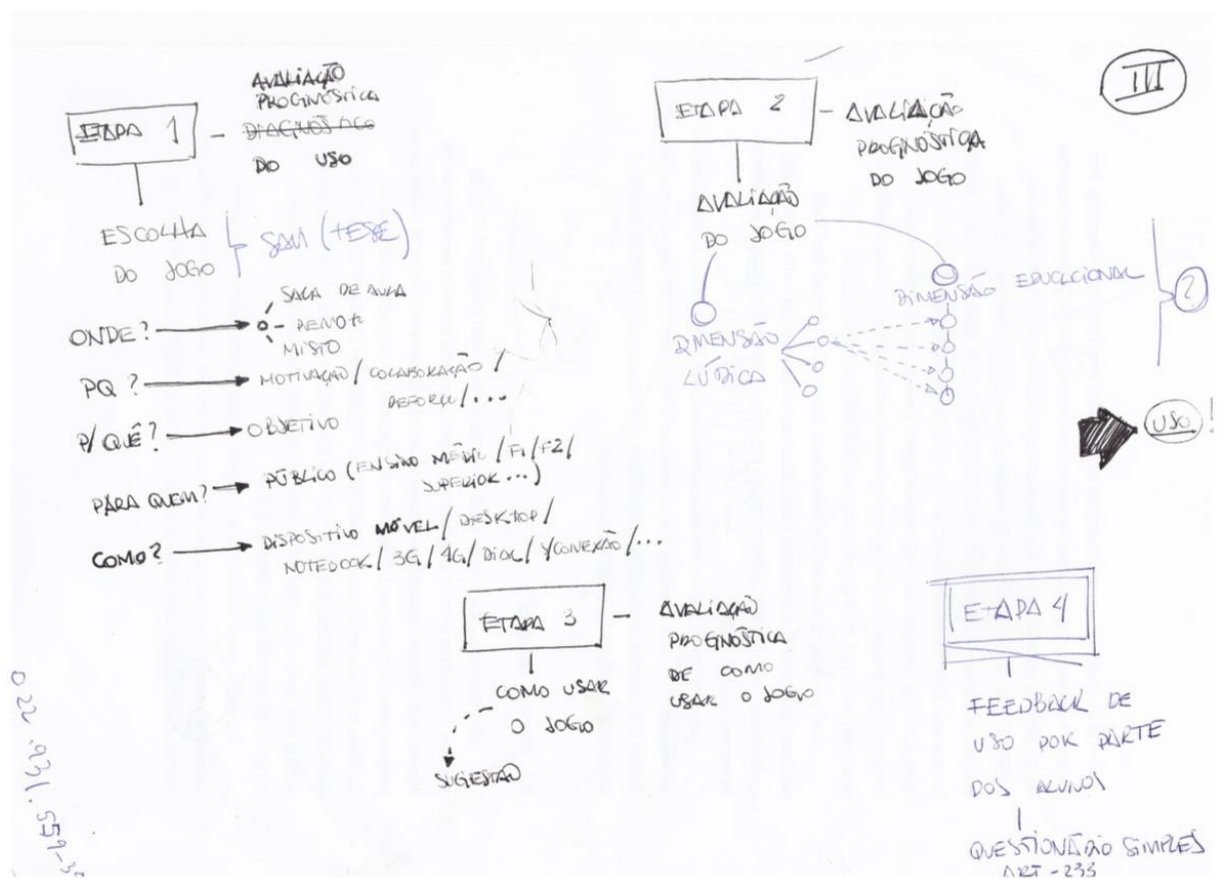 III
AVALIAÇÃO
PROGNÓSTICA
ETAPA 1 - DIAGNÓSTICO
DO USO
ESCOLHA
DO JOGO
SAVI (TESE)
ONDE?
SALA DE AULA
REMOTO
MISTO
PQ ? MOTIVAÇÃO / COLABORAÇÃO /
REFORÇO / ...
P/ QUÊ? OBJETIVO
PARA QUEM? PÚBLICO (ENSINO MÉDIO / F1 / F2 /
SUPERIOR ...)
COMO? DISPOSITIVO MÓVEL / DESKTOP /
NOTEBOOK / 3G / 4G / DIAL / S/CONEXÃO / ...
ETAPA 2 - AVALIAÇÃO
PROGNÓSTICA
DO JOGO
AVALIAÇÃO
DO JOGO
DIMENSÃO EDUCACIONAL
?
DIMENSÃO
LÚDICA
USO !
ETAPA 3 - AVALIAÇÃO
PROGNÓSTICA
DE COMO
USAR O JOGO
COMO USAR
O JOGO
SUGESTÃO
ETAPA 4
FEEDBACK DE
USO POR PARTE
DOS ALUNOS
QUESTIONÁRIO SIMPLES
ART - 233